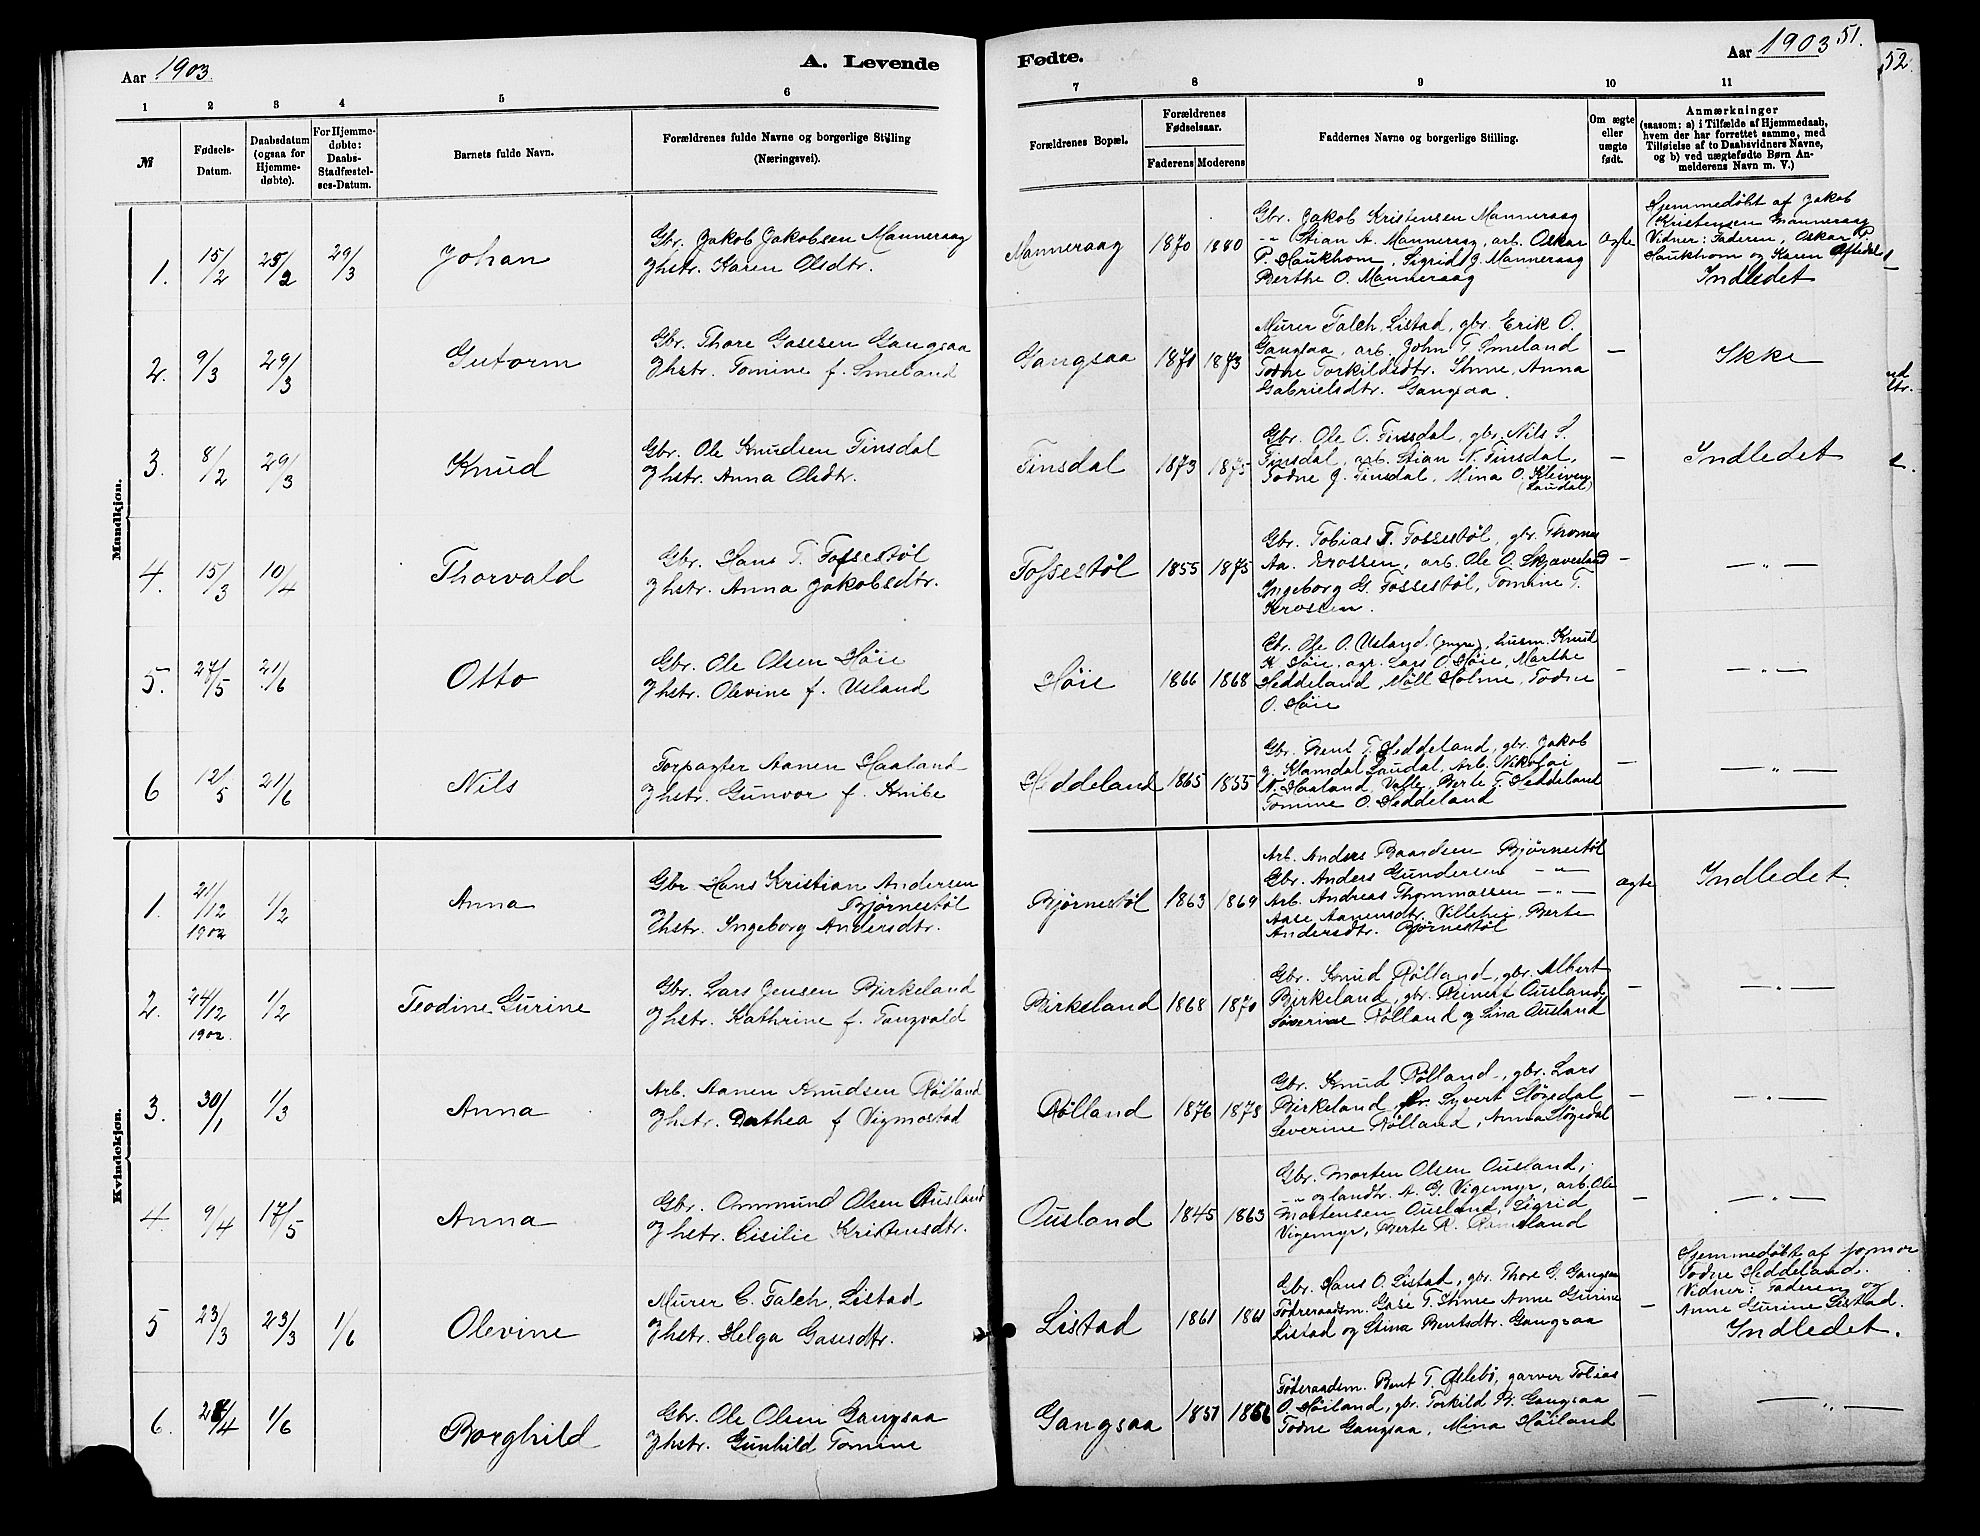 Aar 1903.
A. Levende
1 2 3 4 5 6
№
Fødsels-
Datum.
Daabsdatum
(ogsaa for
Hjemme-
døbte).
For Hjemme-
døbte:
Daabs-
Stadfæstel-
ses-Datum.
Barnets fulde Navn.
Forældrenes fulde Navne og borgerlige Stilling
(Næringsvei).
Mandkjøn.
1. 15/2 25/2 29/3 Johan
Gbr. Jakob Jakobsen Manneraag
Jhstr. Karen Olsdtr.
2. 9/3 29/3 Gutorm
Gbr. Thore Gasesen Gangsaa
Jhstr. Tomine f. Smeland
3. 8/2 29/3 Knud
Gbr. Ole Knudsen Finsdal
Jhstr. Anna Olsdtr.
4. 15/3 10/4 Thorvald
Gbr. Hans T. Fossestøl
Jhstr. Anna Jakobsdtr.
5. 27/5 21/6 Otto
Gbr. Ole Olsen Høie
Jhstr. Olevine f. Usland
6 12/5 21/6 Nils
Forpagter Aanen Haaland
Jhstr. Gunvor f. Knibe
Kvindekjøn.
1. 21/12 1902 1/2 Anna
Gbr Hans Kristian Andersen
Bjørnestøl
Jhstr. Ingeborg Andersdtr.
2. 24/12 1902. 1/2 Teodine Gurine
Gbr. Lars Jensen Birkeland
Jhstr. Kathrine f. Tangvald
3. 30/1 1/3 Anna
Arb. Aanen Knudsen Rølland
Jhstr. Dathea f Vigmostad
4. 9/4 17/5 Anna
Gbr. Ommund Olsen Ousland
Jhstr. Cisilie Kristensdtr.
5 23/3 23/3 1/6 Olevine
Murer C. Falch, Listad
Jhstr. Helga Gasesdtr.
6. 28/4 1/6 Borghild
Gbr. Ole Olsen Gangsaa
Jhstr. Gunhild Tomine
Fødte.
Aar 1903
51.
52.
7 8 9 10 11
Forældrenes Bopæl.
Forældrenes
Fødselsaar.
Faderens Moderens
Faddernes Navne og borgerlige Stilling.
Om ægte
eller
uægte
født.
Anmærkninger
(saasom: a) i Tilfælde af Hjemmedaab,
hvem der har forrettet samme, med
Tilføielse af to Daabsvidners Navne,
og b) ved uægtefødte Børn An-
melderens Navn m. V.)
Manneraag 1870 1880
Gbr. Jakob Kristensen Manneraag
-"- Stian A. Manneraag, arb. Oskar
P. Haukhom, Sigrid J. Manneraag
Berthe O. Manneraag
ægte
Hjemmedøbt af Jakob
Kristensen Manneraag
Vidner: Faderen, Oskar P.
Haukhom og Karen Øftedal
Indledet
Gangsaa 1871 1873
Murer Falch, Listad, gbr. Erik O.
Gangsaa, arb. John T. Smeland
Todne Torkildsdtr. Ihme, Anna
Gabrielsdtr. Gangsaa.
— Ikke
Finsdal 1873 1875
Gbr. Ole O. Finsdal, gbr. Nils S.
Finsdal, arb. Stian N. Finsdal,
Todne J. Finsdal, Mina O. Kleiven
(Laudal)
— Indledet
Fossestøl 1855 1875
Gbr. Tobias T. Fossestøl, gbr. Thomas
Aa. Krossen, arb. Ole O. Skjævesland
Ingeborg G. Fossestøl, Tomine T.
Krossen.
— —"—
Høie 1866 1868
Gbr. Ole O. Usland (yngre), husm. Knud
K. Høie, agr. Lars O. Høie, Marthe
Heddeland, Møll Holme, Todne
O. Høie
— —"—
Heddeland 1865 1855
Gbr. Bent T. Heddeland, gbr. Jakob
J. Klamdal Laudal, Arb. Nikolai
N. Haaland, Valle, Berte T. Heddeland
Tomine O. Heddeland
— —"—
Bjørnestøl 1863 1869
Arb. Anders Baardsen Bjørnestøl
Gbr. Anders Gundersen —"—
Arb. Andreas Thommassen —"—
Aase Aanensdtr. Villehei, Berte
Andersdtr. Bjørnestøl
ægte Indledet.
Birkeland 1868 1870
Gbr. Knud Rølland, gbr. Albert
Birkeland, gbr. Reinert Ousland,
Severine Rølland og Sina Ousland
— —"—
Rølland 1876 1878
Gbr. Knud Rølland, gbr. Lars
Birkeland, Gbr. Syvert Støgedal
Severine Rølland, Anna Støgedal
— —"—
Ousland 1845 1863
Gbr. Morten Olsen Ousland,
-"- og landh. A. G. Vigemyr, arb. Ole
Mortensen Ousland, Sigrid
Vigemyr, Berte R.
— —"—
Listad 1861 1861
Gbr. Hans O. Listad, gbr. Thore G. Gangsaa
Føderaadsm. Gase T. Ihme Anne Gurine
Listad og Stina Bentsdtr. Gangsaa
—
Hjemmedøbt af jormor
Todne Heddeland.
Vidner: Faderen og
Anne Gurine Listad.
Indledet.
Gangsaa 1857 1866
Føderaadsm. Bent T. Øslebø, garver Tobias
O. Høiland, gbr. Torkild B. Gangsaa
Todne Gangsaa, Mina Høiland
— —"—